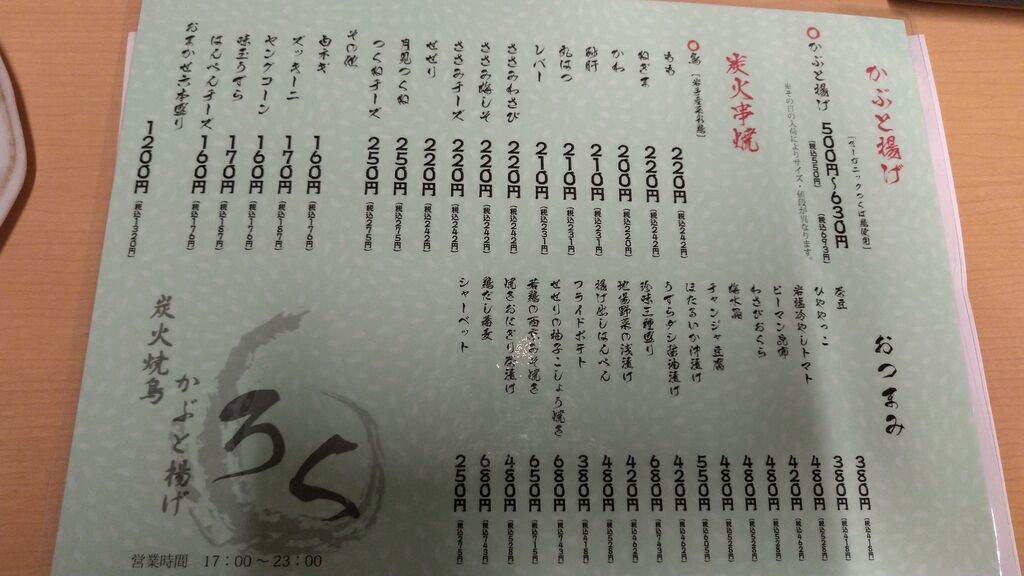 かぶと揚げ
(オーガニックつくば鶏使用)
○かぶと揚げ 500円〜630円
(税込550円) (税込693円)
※その日の入荷によりサイズ・値段が異なります。
炭火串焼
○鳥
もも 220円 (税込242円)
ねぎま 220円 (税込242円)
かわ 200円 (税込220円)
砂肝 210円 (税込231円)
丸はつ 210円 (税込231円)
レバー 210円 (税込231円)
ささみわさび 220円 (税込242円)
ささみ梅しそ 220円 (税込242円)
ささみチーズ 220円 (税込242円)
せせり 220円 (税込242円)
月見つくね 250円 (税込275円)
つくねチーズ 250円 (税込275円)
その他
白ネギ 160円 (税込176円)
ズッキーニ 170円 (税込187円)
ヤングコーン 160円 (税込176円)
味玉うずら 170円 (税込187円)
はんぺんチーズ 160円 (税込176円)
おまかせ六本盛り 1200円 (税込1320円)
おつまみ
枝豆 380円 (税込418円)
ひややっこ 380円 (税込418円)
岩塩冷やしトマト 480円 (税込528円)
ピーマン昆布 420円 (税込462円)
わさびおくら 480円 (税込528円)
梅水晶 480円 (税込528円)
チャンジャ豆腐 480円 (税込528円)
ほたるいか沖漬け 550円 (税込605円)
うずらダシ醤油漬け 420円 (税込462円)
珍味三種盛り 680円 (税込743円)
地場野菜の浅漬け 420円 (税込462円)
揚げ出しはんぺん 480円 (税込528円)
フライドポテト 380円 (税込418円)
せせりの柚子こしょう焼き 680円 (税込743円)
若鶏の西京みそ焼き 650円 (税込715円)
焼きおにぎり茶漬け 480円 (税込528円)
鶏だし蕎麦 680円 (税込743円)
シャーベット 250円 (税込275円)
炭火焼鳥
かぶと揚げ
ろく
営業時間 17:00〜23:00